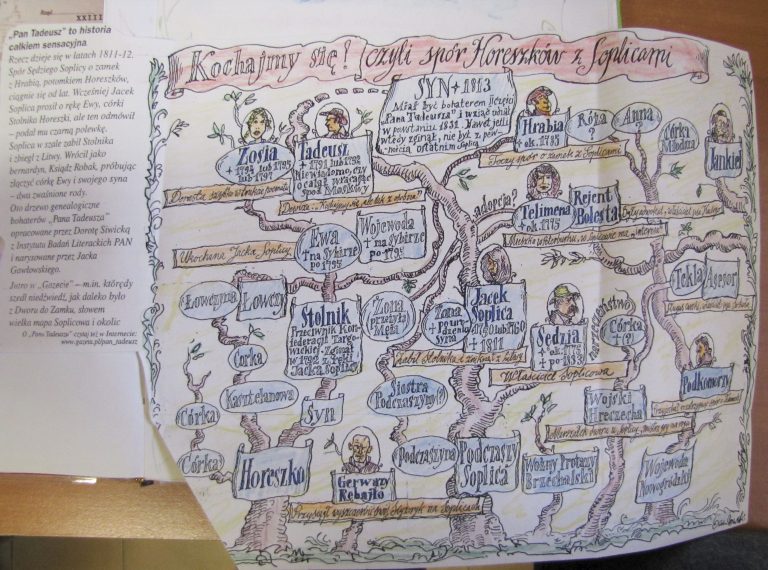 XXIII
„Pan Tadeusz” to historia
całkiem sensacyjna
Rzecz dzieje się w latach 1811-12.
Spór Sędziego Soplicy o zamek
z Hrabią, potomkiem Horeszków,
ciągnie się od lat. Wcześniej Jacek
Soplica prosił o rękę Ewy, córki
Stolnika Horeszki, ale ten odmówił
– podał mu czarną polewkę.
Soplica w szale zabił Stolnika
i zbiegł z Litwy. Wrócił jako
bernardyn, Ksiądz Robak, próbując
złączyć córkę Ewy i swojego syna
– dwa zwaśnione rody.
Oto drzewo genealogiczne
bohaterów „Pana Tadeusza”
opracowane przez Dorotę Siwicką
z Instytutu Badań Literackich PAN
i narysowane przez Jacka
Gawłowskiego.
Jutro w „Gazecie” – m.in. którędy
szedł niedźwiedź, jak daleko było
z Dworu do Zamku, słowem
wielka mapa Soplicowa i okolic
O „Panu Tadeuszu” czytaj też w Internecie:
www.gazeta.pl/pan_tadeusz
Kochajmy się! czyli spór Horeszków z Soplicami
SYN + 1813
Miał być bohaterem
"Pana Tadeusza" i wziąć udział
w powstaniu 1831. Nawet jeśli
wtedy zginął, nie był z pew-
nością ostatnim Soplicą
Zosia
Tadeusz
Nie wiadomo, czy
ocalał, wracając
spod Moskwy
Hrabia
+ ok.
Róża
?
Anna
?
Córka
Młodsza
Jankiel
Toczy spór o zamek z Soplicami
adopcja?
Telimena
+ ok.
Rejent
Bolesta
Ewa
+ na Sybirze
po
Wojewoda
+ na Sybirze
po
Ukochana Jacka Soplicy
Tekla
Asesor
Łowczyna
Łowczy
Stolnik
Przeciwnik Kon-
federacji Targo-
wickiej. Zginął
w 1792 z ręki
Jacka Soplicy
Żona
przeżyła
Męża
Żona
+ po ur-
dzeniu
syna
Jacek
Soplica
+ 1811
Sędzia
+ ok.
+ po
narzeczeństwo
Córka
+ (?)
Zabił Stolnika i
Właściciel Soplicowa
Podkomorzy
Córka
Kasztelanowa
Syn
Siostra
Podczaszyny(?)
Wojski
Hreczecha
Córka
Córka
Horeszko
Gerwazy
Rębajło
Podczaszyna
Podczaszy
Soplica
Woźny Protazy
Brzechalski
Wojewoda
Nowogródzki
Przysiągł wyszczerbić swój Scyzoryk na Soplicach